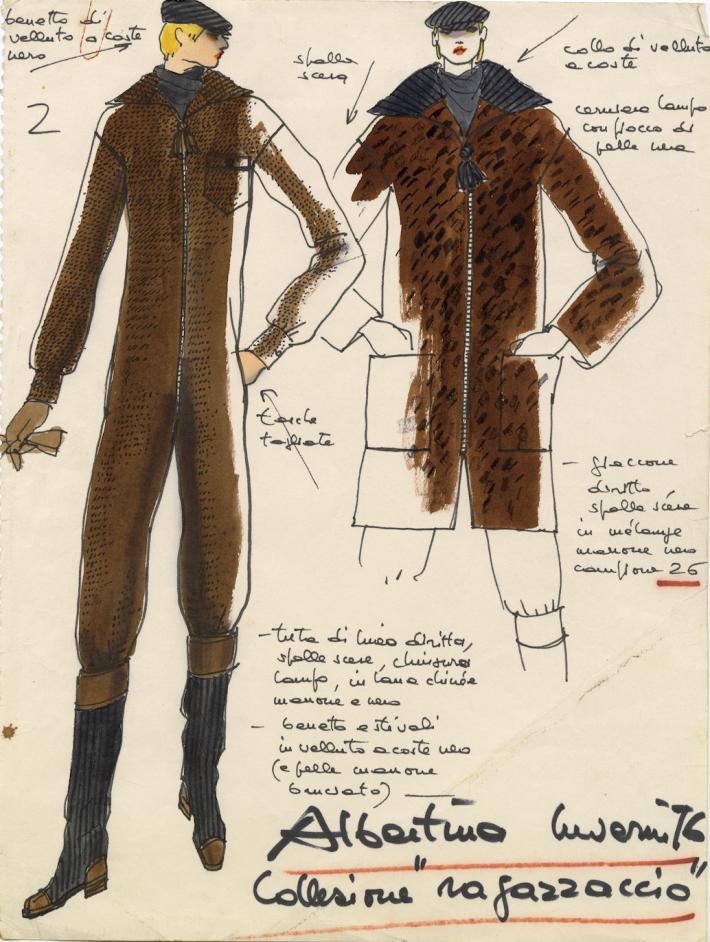 beretto di
velluto a coste
nero
2
spalla
scesa
collo di velluto
a coste
cerniera lampo
con fiocco di
pelle nera
tasche
tagliate
- giaccone
diritto
spalla scesa
in mélange
marrone nero
campione 26
- tuta di linea diritta,
spalle scese, chiusura
lampo, in lana chinée
marrone e nero
- beretto e stivali
in velluto a coste nero
(e pelle marrone
bruciato)
Albertina Inverni 76
Collezione "ragazzaccio"